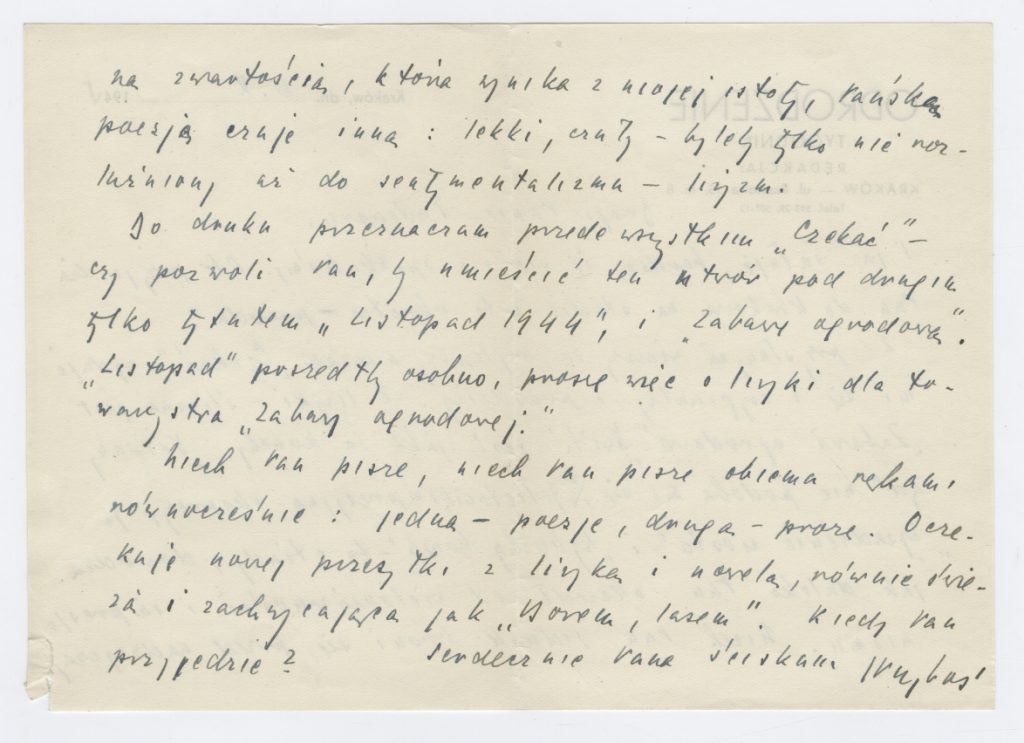 na zwartością, która wynika z mojej istoty, Pańską
poezję czuję inną: lekki, czuły – byleby tylko nie roz-
luźniony aż do sentymentalizmu – liryzm.
Do druku przeznaczam przede wszystkim „Czekać" –
czy pozwoli Pan, by umieścić ten utwór pod drugim
tylko tytułem „Listopad 1944", i „Zabawę ogrodową".
„Listopad" poszedłby osobno, proszę więc o liryki dla to-
warzystwa „Zabawy ogrodowej."
Niech Pan pisze, niech Pan pisze obiema rękami
równocześnie: jedną – poezję, drugą – prozę. Ocze-
kuję nowej przesyłki z liryką i nowelą, równie świe-
żą i zachwycającą jak „Borem, lasem". Kiedy Pan
przyjedzie? Serdecznie Pana ściskam
ODRODZENIE
REDAKCJA:
KRAKÓW
Kraków, dn.
194